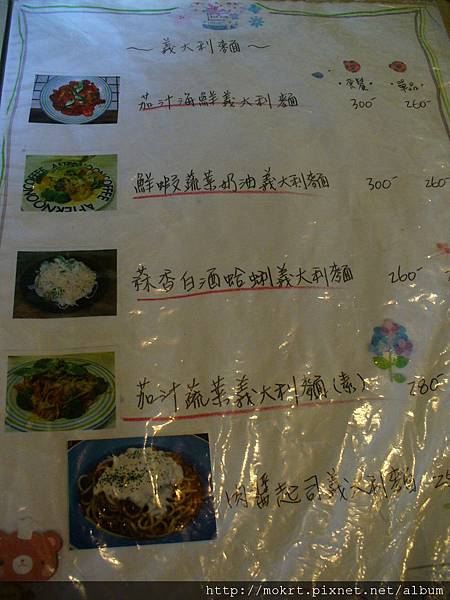 ～義大利麵～
套餐 單品
茄汁海鮮義大利麵 300- 260-
鮮蝦蔬菜奶油義大利麵 300- 260-
AFTERNOON COFFEE
蒜香白酒蛤蜊義大利麵 260-
茄汁蔬菜義大利麵(素) 280-
肉醬起司義大利麵
http://mokrt.pixnet.net/album